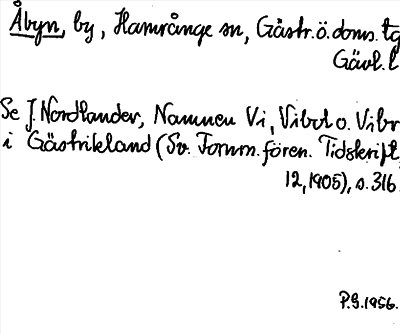 Åbyn, by, Hamrånge sn, Gästr. ö. doms. tg
Gävl. l
Se J. Nordlander, Namnen Vi, Vibo o. Viby
i Gästrikland (Sv. Fornm. fören. Tidskrift
12, 1905), s. 316.
P.G. 1956.